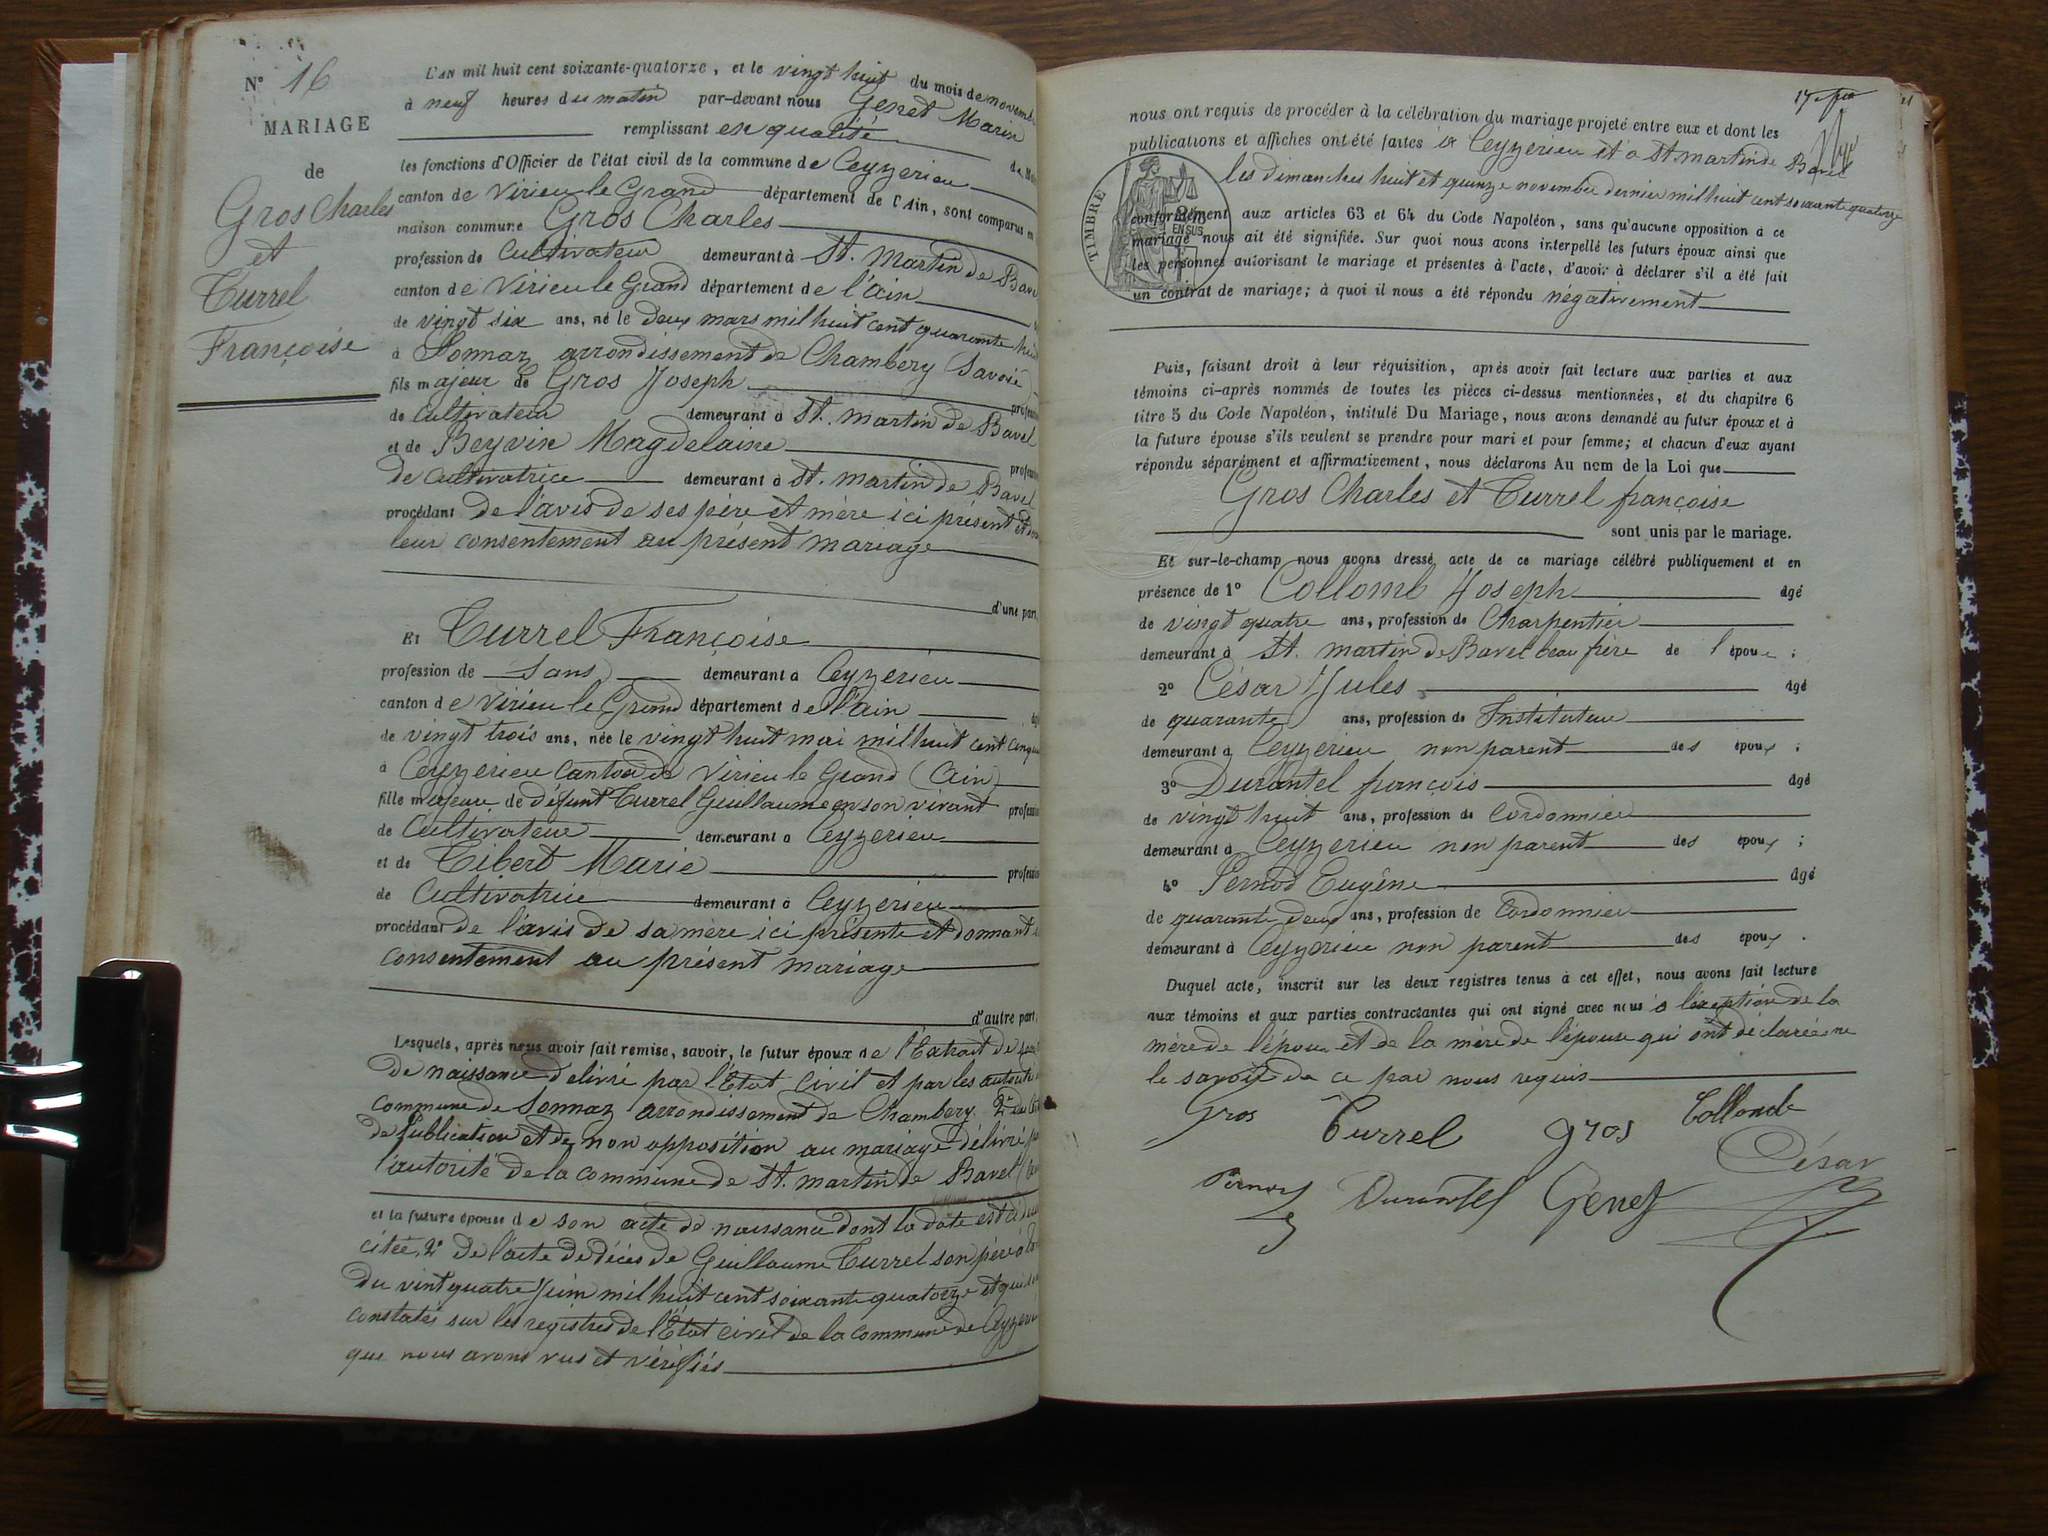 N° 16
MARIAGE
de
Gros Charles
et
Turrel
Françoise
L'AN mil huit cent soixante-quatorze, et le vingt huit du mois de novemb
à neuf heures du matin par-devant nous Genet Marin
remplissant en qualité de M
les fonctions d'Officier de l'état civil de la commune de Ceyzerieu
canton de Virieu le Grand département de l'Ain, sont comparus en
maison commune Gros Charles
profession de Cultivateur demeurant à St. Martin de Bave
canton de Virieu le Grand département de l'Ain
de vingt six ans, né le deux mars mil huit cent quarante huit
à Sonnaz arrondissement de Chambery (Savoie)
fils majeur de Gros Joseph profession
de Cultivateur demeurant à St. Martin de Bavel
et de Beyvin Magdelaine profession
de Cultivatrice demeurant à St. Martin de Bavel
procédant de l'avis de ses père et mère ici présent et
leur consentement au présent mariage
d'une part,
Et Turrel Françoise
profession de Sans demeurant à Ceyzerieu
canton de Virieu le Grand département de l'Ain
de vingt trois ans, née le vingt huit mai mil huit cent cinqu
à Ceyzerieu Canton de Virieu le Grand (Ain)
fille majeure de défunt Turrel Guillaume en son vivant profession
de Cultivateur demeurant à Ceyzerieu
et de Tibert Marie profession
de Cultivatrice demeurant à Ceyzerieu
procédant de l'avis de sa mère ici présente et donnant
consentement au présent mariage
d'autre part;
Lesquels, après nous avoir fait remise, savoir, le futur époux de l'Extrait de
de naissance delivré par l'Etat Civil et par les autorité
commune de Sonnaz arrondissement de Chambery 2°
de Publication et de non opposition au mariage délivré
l'autorité de la commune de St. Martin de Bavel
et la future épouse de son acte de naissance dont la date est
citée, 2° de l'acte de décès de Guillaume Turrel son père
du vint quatre Juin mil huit cent soixante quatorze et qui
constatés sur les registres de l'État civil de la commune de Ceyzerieu
que nous avons vus et vérifiés
nous ont requis de procéder à la célébration du mariage projeté entre eux et dont les
publications et affiches ont été faites à Ceyzerieu et à St. martin de Bavel
les dimanches huit et quinze novembre dernier mil huit cent soixante quatorze
TIMBRE
EN SUS
conformément aux articles 63 et 64 du Code Napoléon, sans qu'aucune opposition à ce
mariage nous ait été signifiée. Sur quoi nous avons interpellé les futurs époux ainsi que
les personnes autorisant le mariage et présentes à l'acte, d'avoir à déclarer s'il a été fait
un contrat de mariage; à quoi il nous a été répondu négativement
Puis, faisant droit à leur réquisition, après avoir fait lecture aux parties et aux
témoins ci-après nommés de toutes les pièces ci-dessus mentionnées, et du chapitre 6
titre 5 du Code Napoléon, intitulé Du Mariage, nous avons demandé au futur époux et à
la future épouse s'ils veulent se prendre pour mari et pour femme; et chacun d'eux ayant
répondu séparément et affirmativement, nous déclarons Au nom de la Loi que
Gros Charles et Turrel françoise
sont unis par le mariage.
Et sur-le-champ nous avons dressé acte de ce mariage célébré publiquement et en
présence de 1° Collomb Joseph âgé
de vingt quatre ans, profession de Charpentier
demeurant à St. Martin de Bavel beau frère de l'époux;
2° César Jules âgé
de quarante ans, profession de Instituteur
demeurant à Ceyzerieu non parent des époux;
3° Durantel françois âgé
de vingt huit ans, profession de Cordonnier
demeurant à Ceyzerieu non parent des époux;
4° Pernod Eugène âgé
de quarante deux ans, profession de Cordonnier
demeurant à Ceyzerieu non parent des époux.
Duquel acte, inscrit sur les deux registres tenus à cet effet, nous avons fait lecture
aux témoins et aux parties contractantes qui ont signé avec nous à l'exception de la
mère de l'époux et de la mère de l'épouse qui ont déclarée ne
le savoir de ce par nous requis
Gros Turrel gros Collomb
César
Pernod Durantel Genet